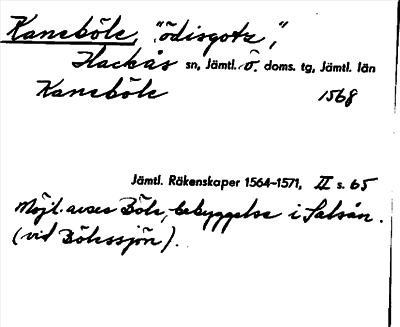 Kaneböle, "ödisgotz",
Hackås sn, Jämtl. ö. doms. tg, Jämtl. län
Kaneböle 1568
Jämtl. Räkenskaper 1564–1571, II s. 65
Möjl. avses Böle, bebyggelse i Salsån.
(vid Bölessjön).